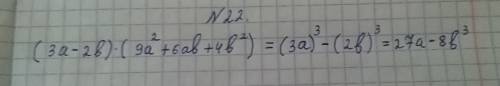 №22.
(3a-2b)·(9a²+6ab+4b²)=(3a)³-(2b)³=27a-8b³